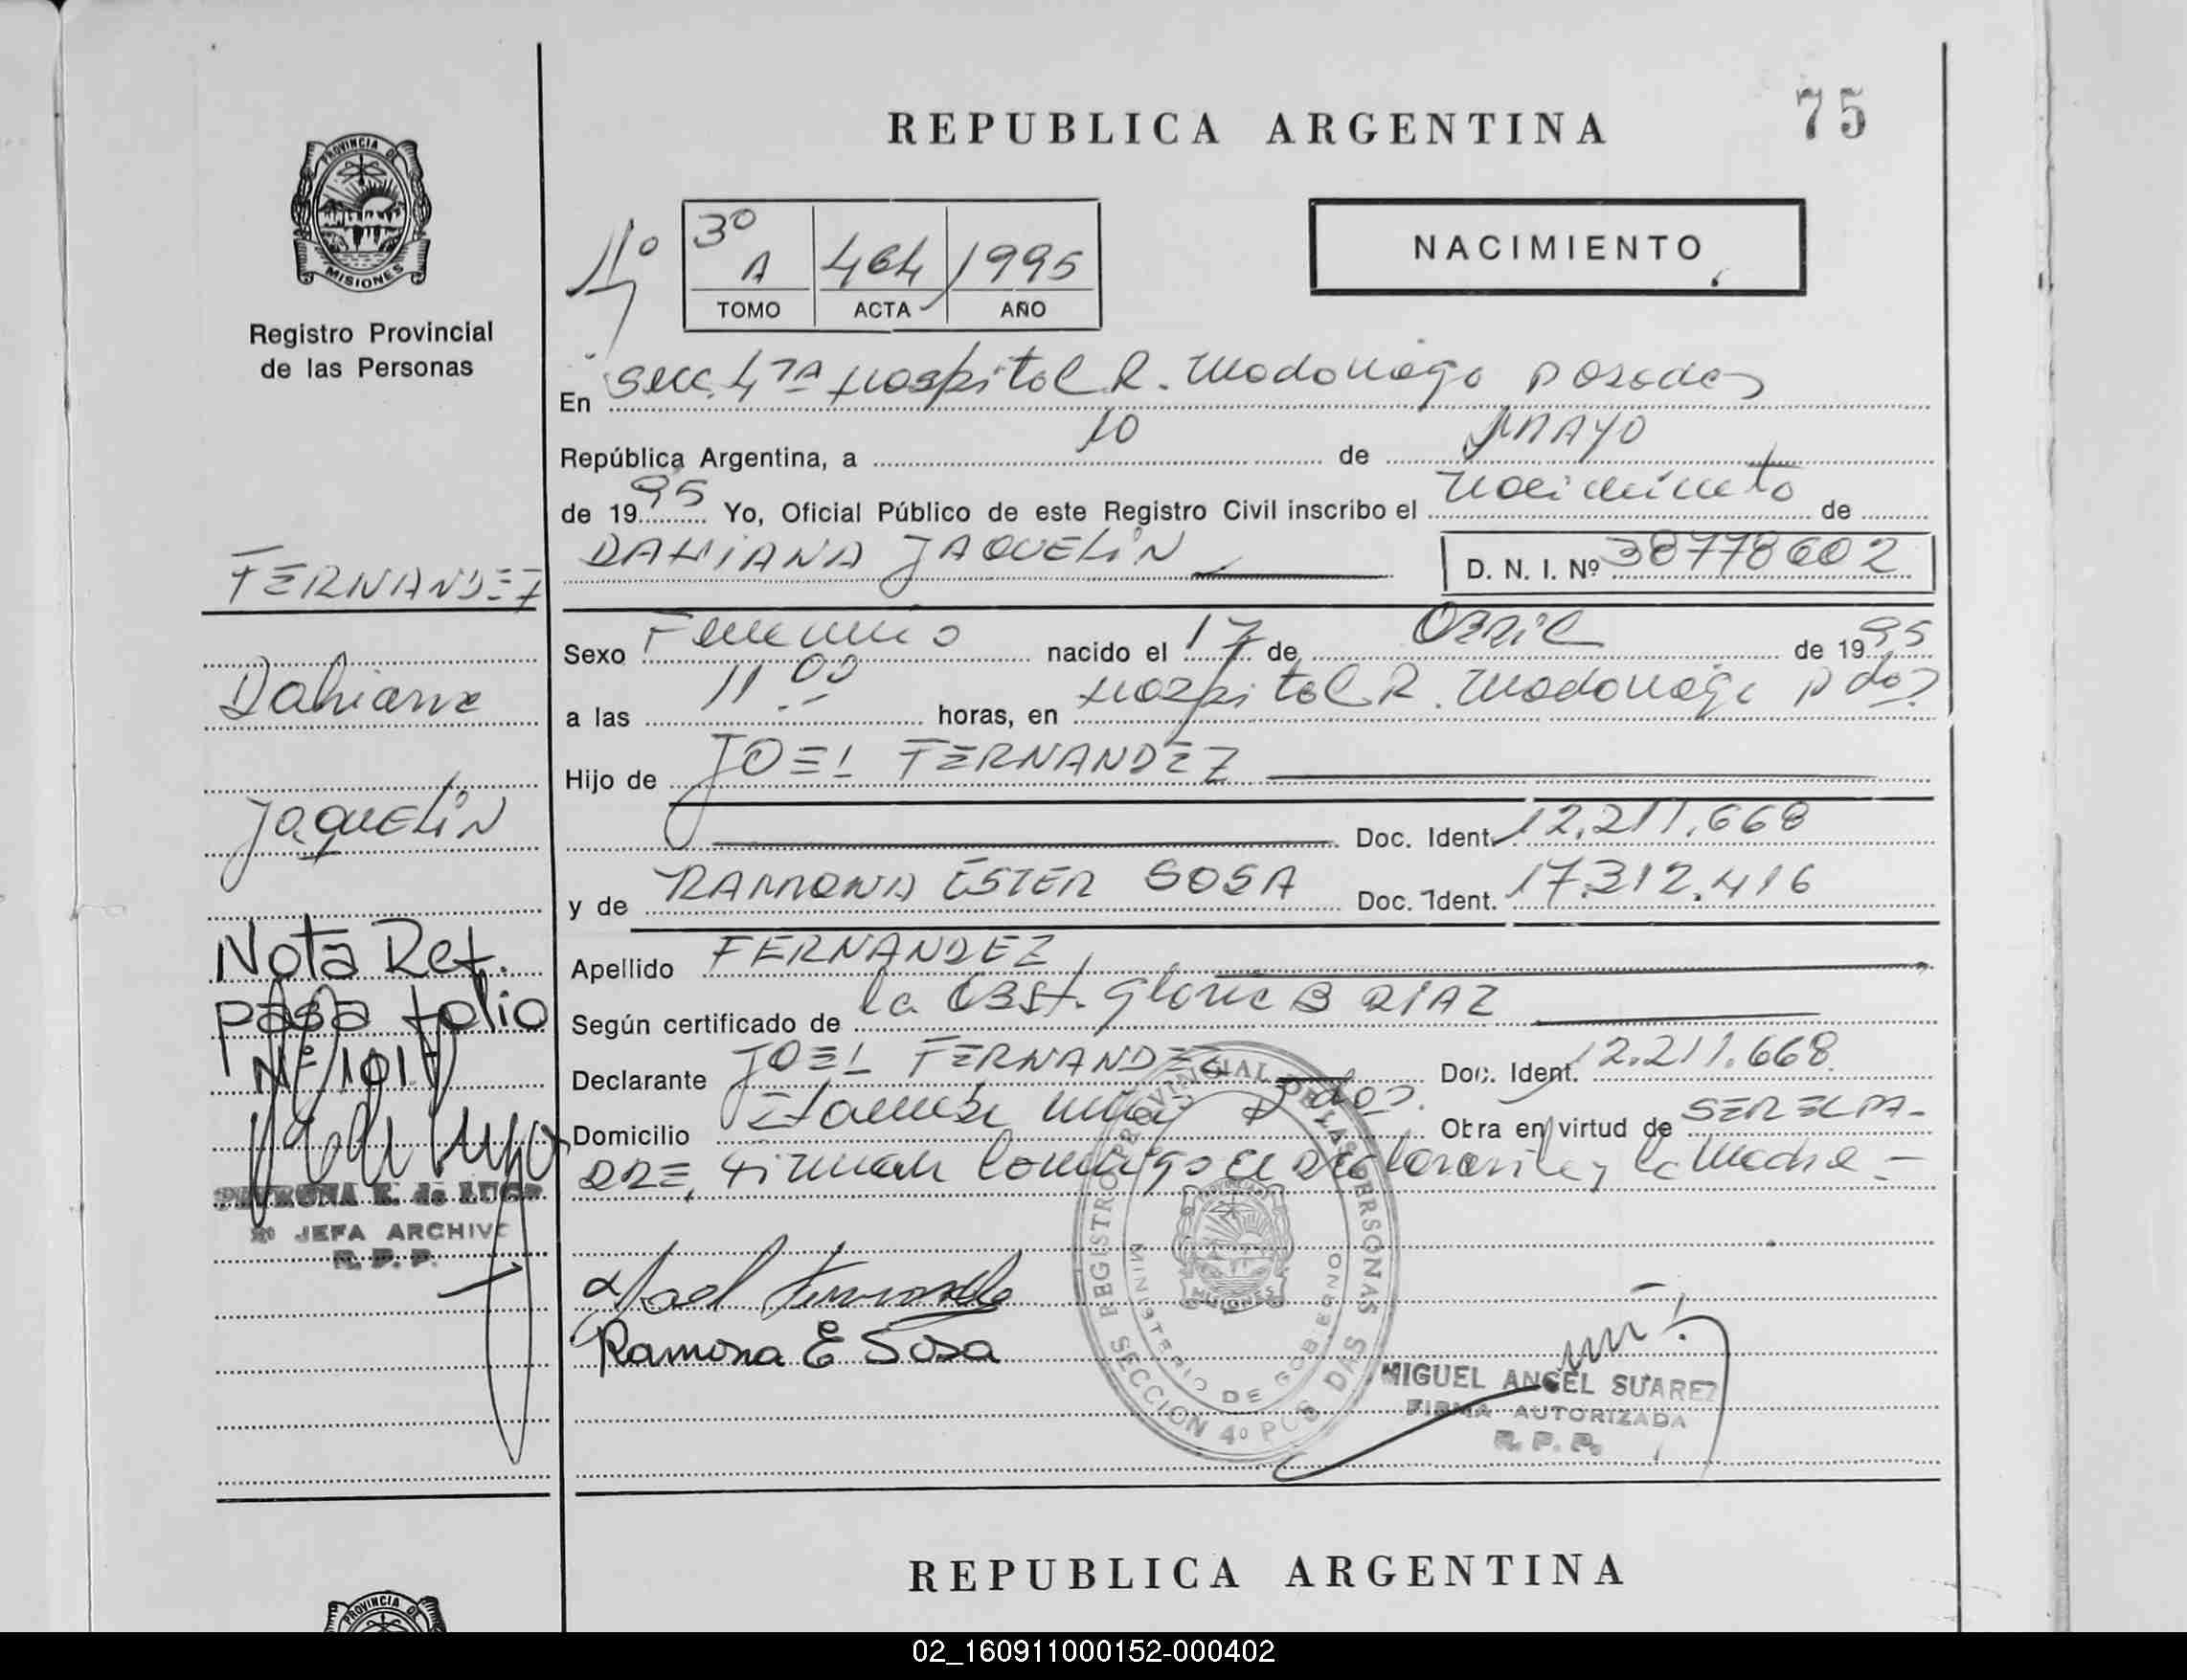 75
REPUBLICA ARGENTINA
PROVINCIA DE
MISIONES
Registro Provincial
de las Personas
4º
3º A 464 1995
TOMO ACTA AÑO
NACIMIENTO
En Secc. 4TA Hospital R. Madariaga Posadas
República Argentina, a 10 de MAYO
de 1995 Yo, Oficial Público de este Registro Civil inscribo el nacimiento de
DAHIANA JAQUELIN D. N. I. Nº 38778602
FERNANDEZ
Dahiana
Jaquelin
Sexo Femenino nacido el 17 de Abril de 1995
a las 11 00 horas, en Hospital R. Madariaga Pdas
Hijo de JOEL FERNANDEZ
Doc. Ident. 12.211.668
y de RAMONA ESTER SOSA Doc. Ident. 17.312.416
Apellido FERNANDEZ
Según certificado de la Obst. Gloria B DIAZ
Declarante JOEL FERNANDEZ Doc. Ident. 12.211.668
Domicilio Pdas. Obra en virtud de SER EL PA-
DRE, firman conmigo el declarante y la madre -
Nota Ref.
pasa folio
Nº 101
PETRONA E. de LUGO
JEFA ARCHIVO
R. P. P.
Joel Fernandez
Ramona E Sosa
REGISTRO PROVINCIAL DE LAS PERSONAS
MINISTERIO DE GOBIERNO
SECCION 4º POSADAS
MISIONES
MIGUEL ANGEL SUAREZ
FIRMA AUTORIZADA
R. P. P.
REPUBLICA ARGENTINA
PROVINCIA DE
02_160911000152-000402